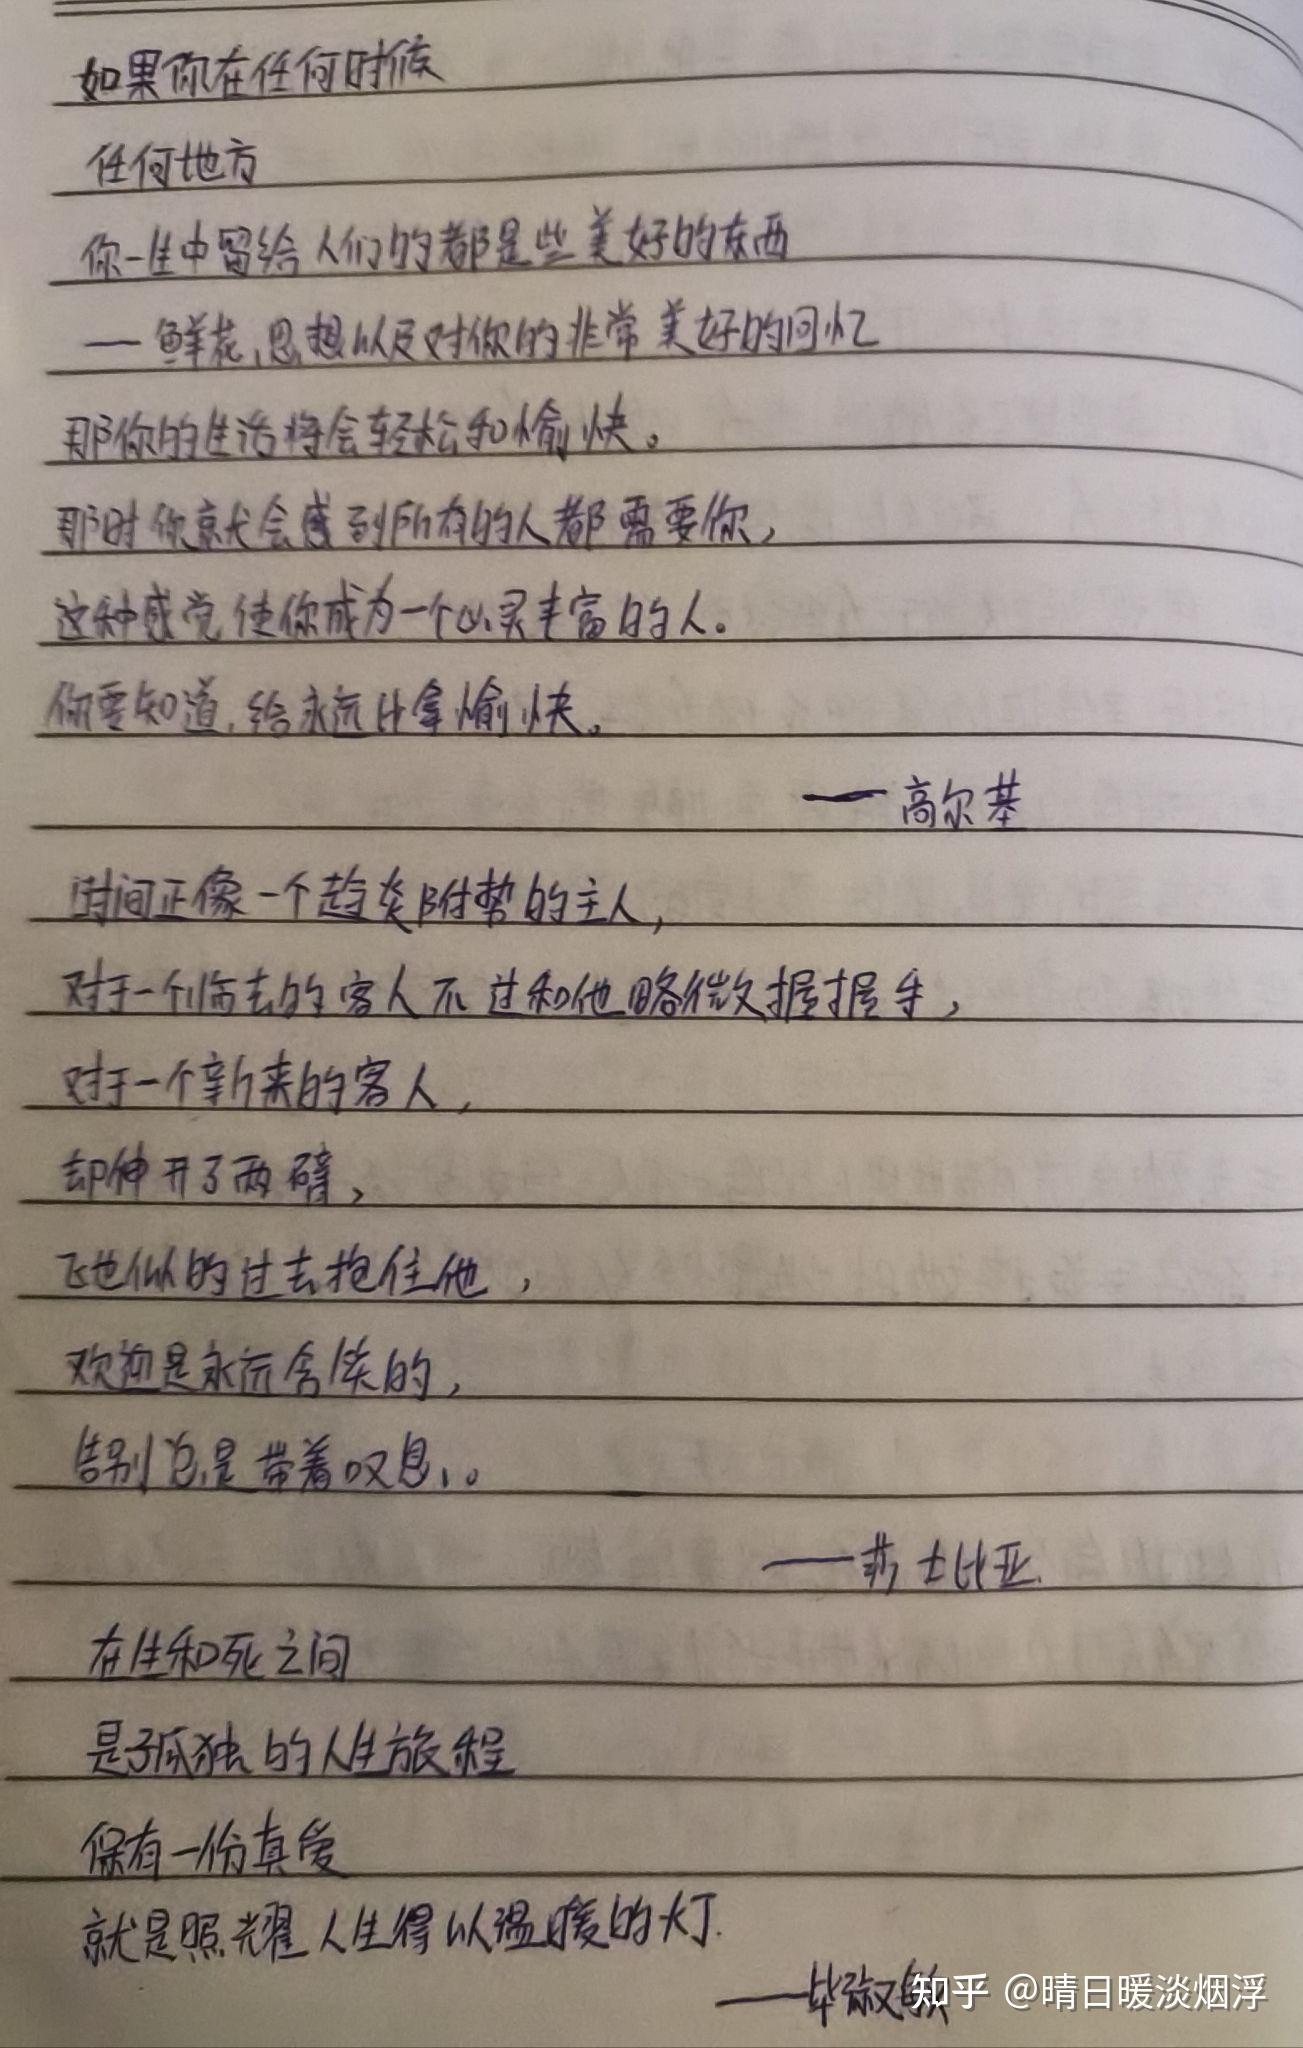 如果你在任何时候
任何地方
你一生中留给人们的都是些美好的东西
—鲜花,思想以及对你的非常美好的回忆
那你的生活将会轻松和愉快。
那时你就会感到所有的人都需要你,
这种感觉使你成为一个心灵丰富的人。
你要知道,给永远比拿愉快。
——高尔基
时间正像一个趋炎附势的主人,
对于一个临去的客人不过和他略微握握手,
对于一个新来的客人,
却伸开了两臂,
飞也似的过去抱住他,
欢迎是永远含笑的,
告别总是带着叹息,。
——莎士比亚.
在生和死之间
是孤独的人生旅程
保有一份真爱
就是照耀人生得以温暖的灯.
——毕淑敏
知乎 @晴日暖淡烟浮